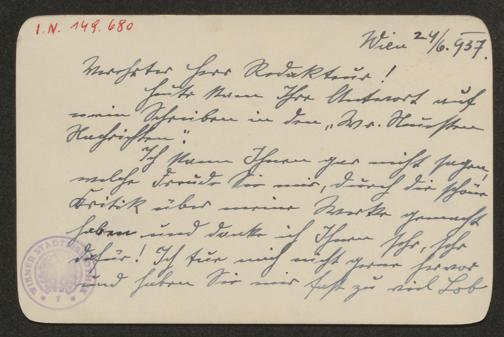 I.N. 149.680
Wien 24/6. 937.
Verehrter Herr Redakteur!
Heute kam Ihre Antwort auf
mein Schreiben in den „Wr. Neuesten
Nachrichten".
Ich kann Ihnen gar nicht sagen,
welche Freude Sie mir, durch die schöne
Kritik über meine Werke gemacht
haben und danke ich Ihnen sehr, sehr
dafür! Ich tue mich nicht gerne hervor
und haben Sie mir fast zu viel Lob
WIENER STADT